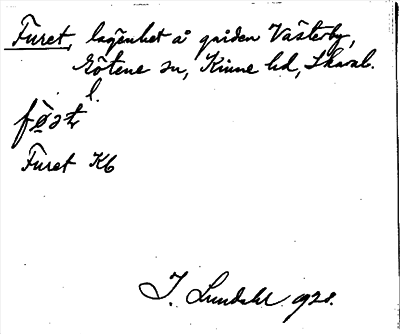 Furet, lägenhet å griden Västerby,
Götene sn, Kinne hd, Skarab.
l.
Furet Kb
I. Lundahl 1928.